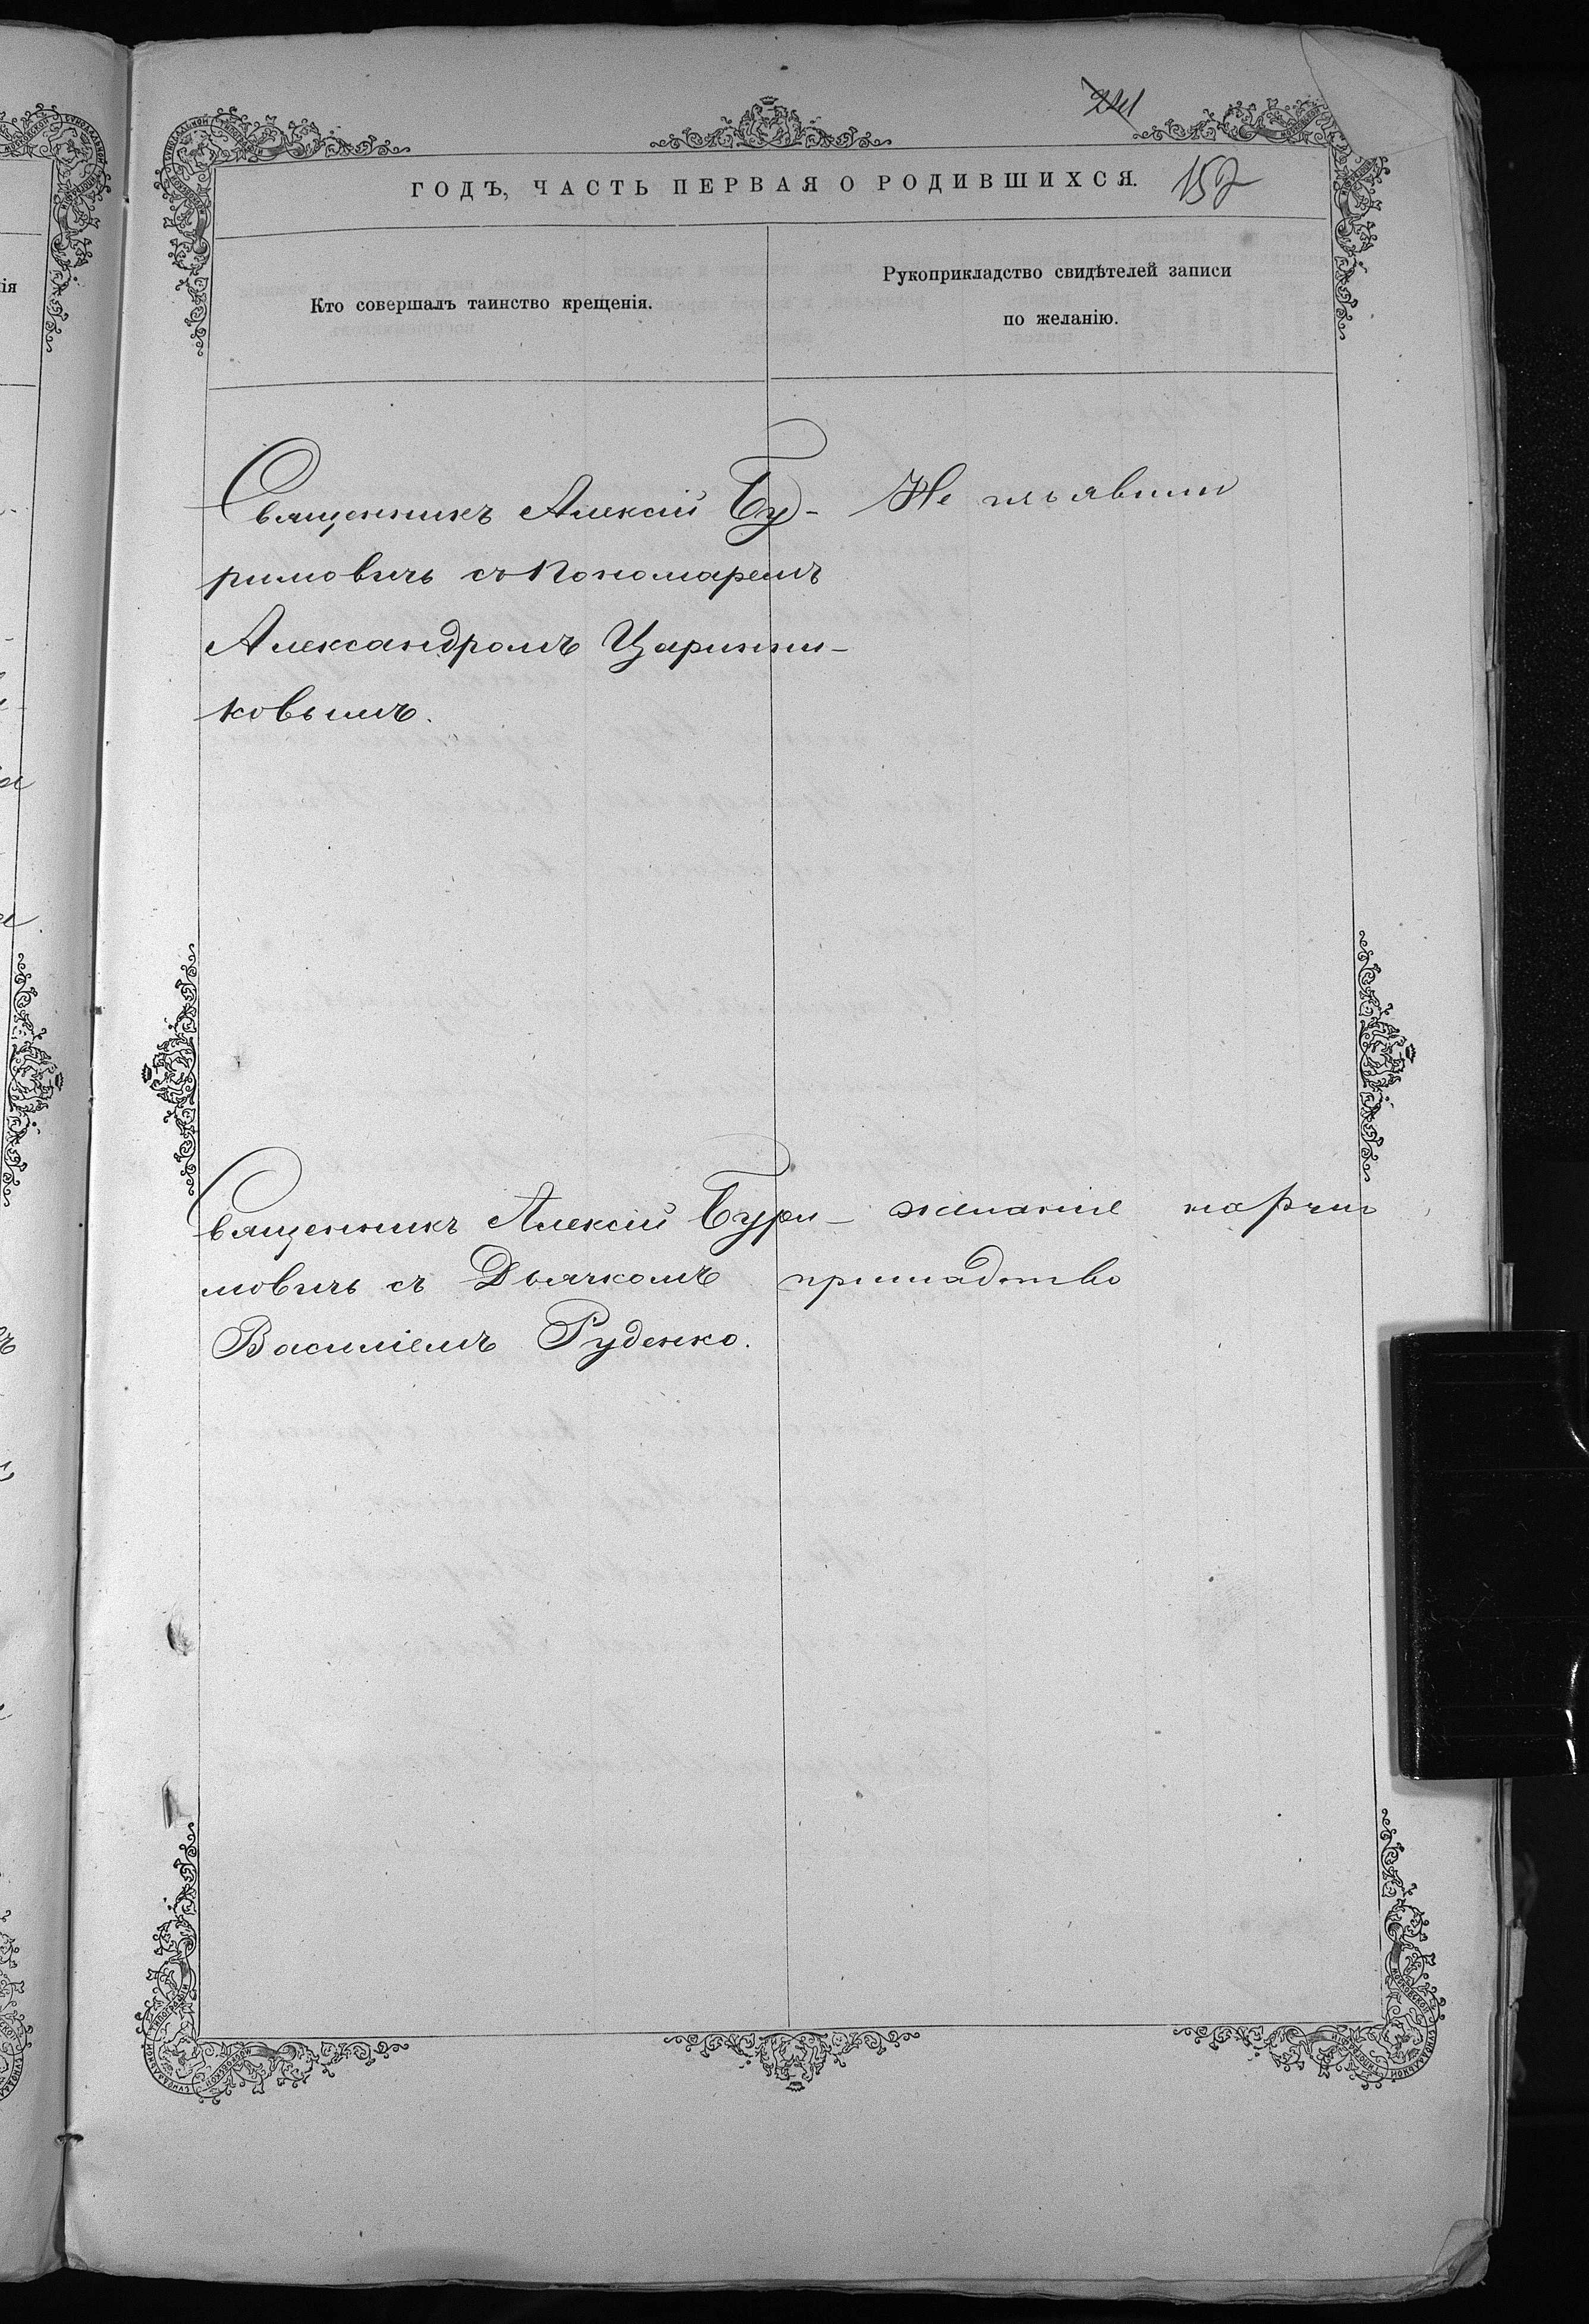 241
ГОДЪ, ЧАСТЬ ПЕРВАЯ О РОДИВШИХСЯ. 157
Кто совершалъ таинство крещенія.
Рукоприкладство свидѣтелей записи
по желанію.
Священникъ Алексій Бу-
римовичь съ Пономаремъ
Александромъ Царинни-
ковымъ.
Не изъявили
Священникъ Алексій Бури-
мовичь съ Дьячкомъ
Василіемъ Руденко.
желаніе